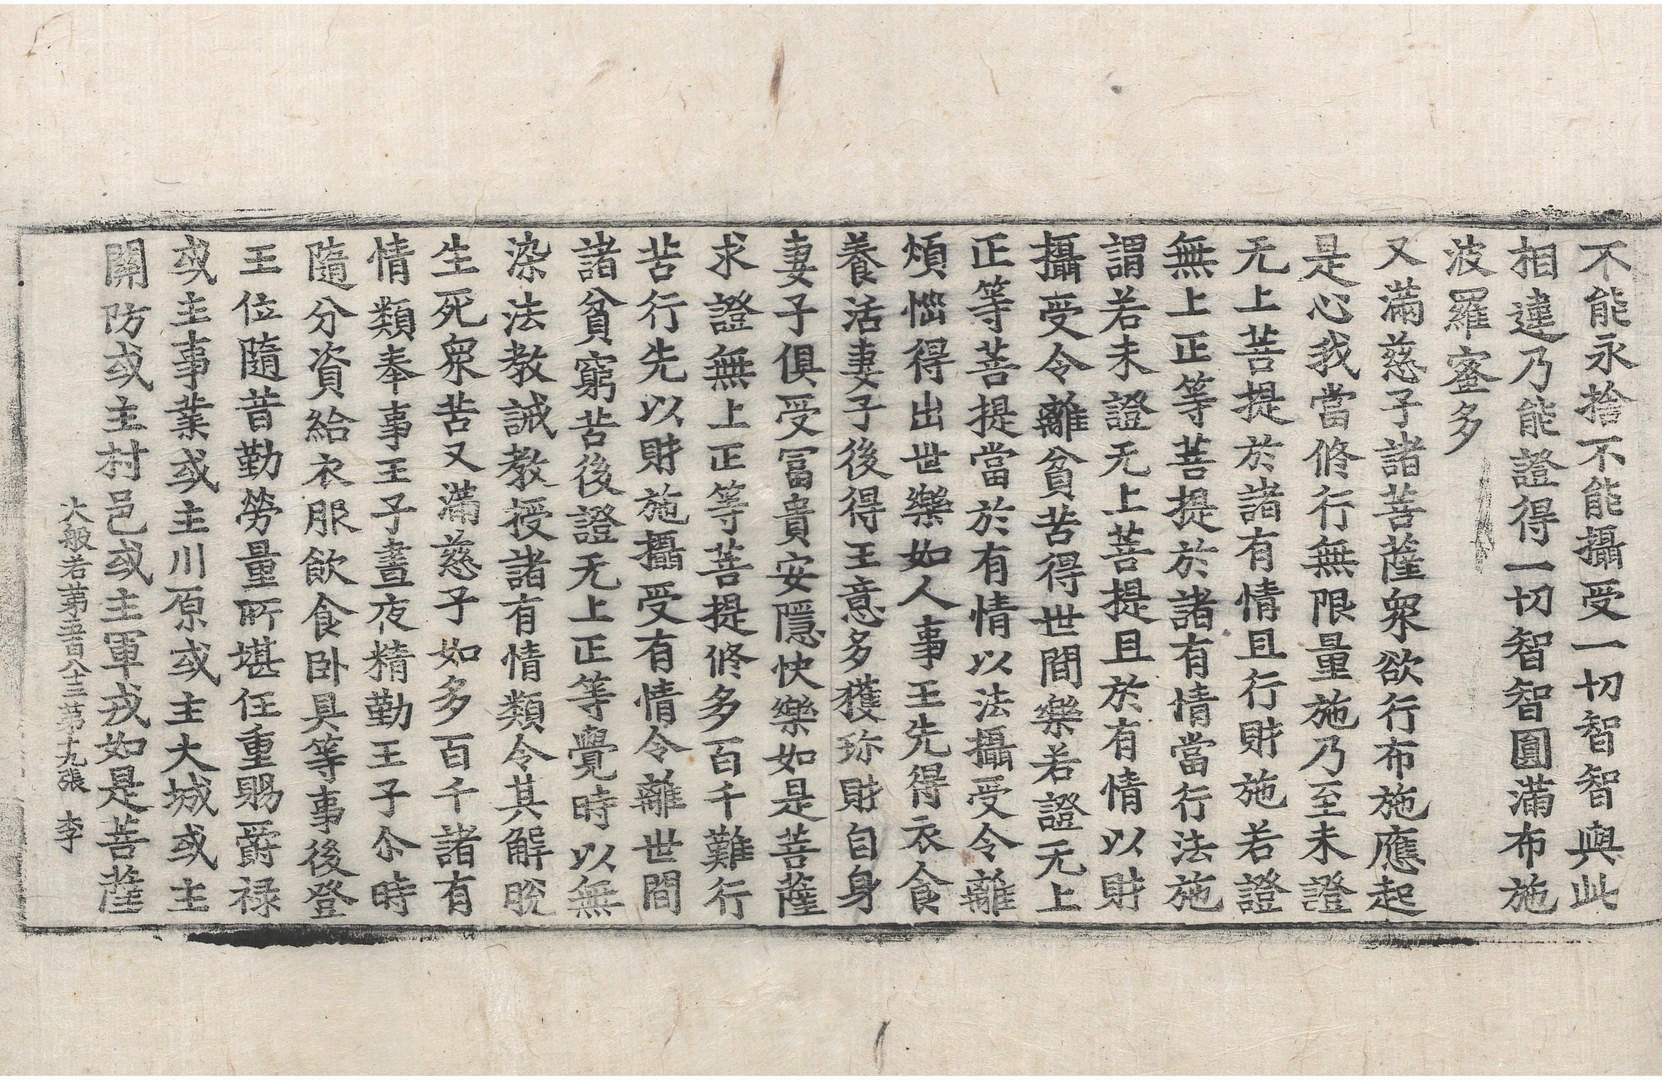 不能永捨不能攝受一切智智與此
相違乃能證得一切智智圓滿布施
波羅蜜多
又滿慈子諸菩薩衆欲行布施應起
是心我當修行無限量施乃至未證
无上菩提於諸有情且行財施若證
無上正等菩提於諸有情當行法施
謂若未證无上菩提且於有情以財
攝受令離貧苦得世間樂若證无上
正等菩提當於有情以法攝受令離
煩惱得出世樂如人事王先得衣食
養活妻子後得王意多獲珎財自身
妻子俱受冨貴安隱快樂如是菩薩
求證無上正等菩提修多百千難行
苦行先以財施攝受有情令離世間
諸貧窮苦後證无上正等覺時以無
染法教誡教授諸有情類令其解脫
生死衆苦又滿慈子如多百千諸有
情類奉事王子晝夜精勤王子尒時
隨分資給衣服飮食卧具等事後登
王位隨昔勤勞量所堪任重賜爵禄
或主事業或主川原或主大城或主
關防或主村邑或主軍戎如是菩薩
大般若第五百八十三第十九張 李